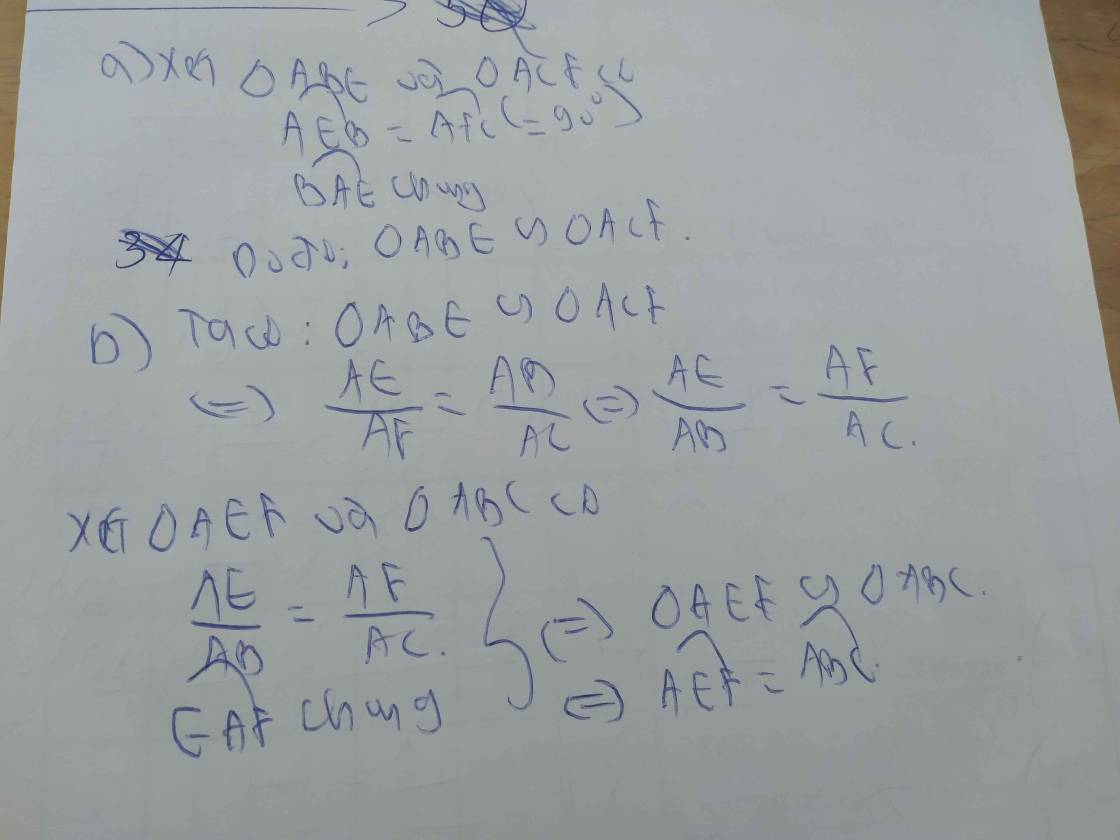 a) Xét ΔABE và ΔACF có
AEB = AFC (= 90°)
BAE chung
Do đó: ΔABE ∽ ΔACF.
b) Ta có: ΔABE ∽ ΔACF
<=> AE/AF = AB/AC <=> AE/AB = AF/AC.
Xét ΔAEF và ΔABC có
AE/AB = AF/AC. } <=> ΔAEF ∽ ΔABC.
EAF chung <=> AEF = ABC.